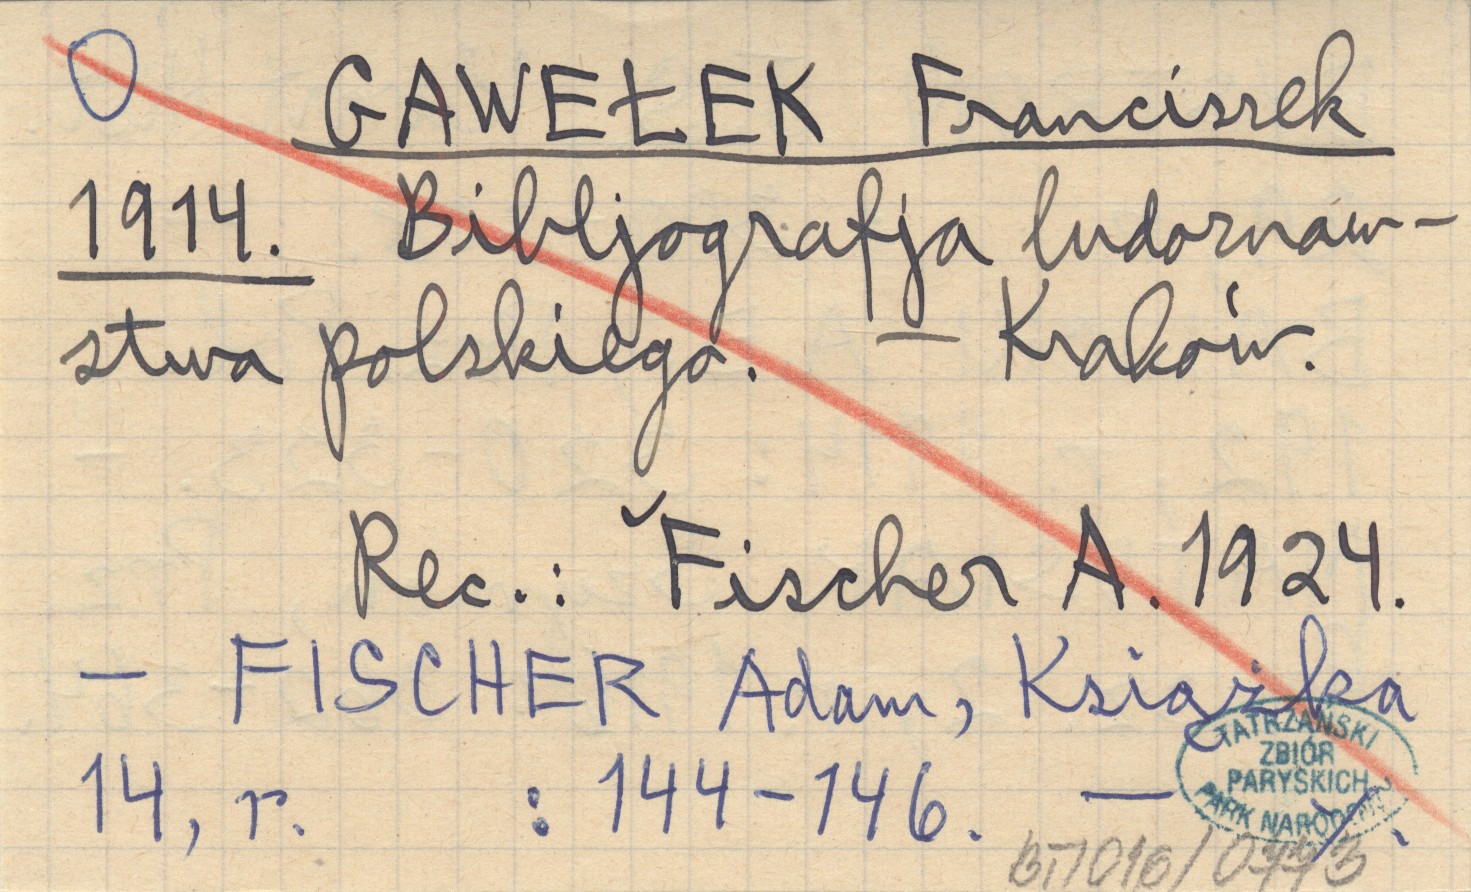 GAWEŁEK Franciszek
1914. Bibljografja ludoznaw-
stwa polskiego. – Kraków.
Rec.: Fischer A. 1924.
– FISCHER Adam, Książka
14, r. : 144-146. –
TATRZAŃSKI
ZBIÓR
PARYSKICH
PARK NARODOWY